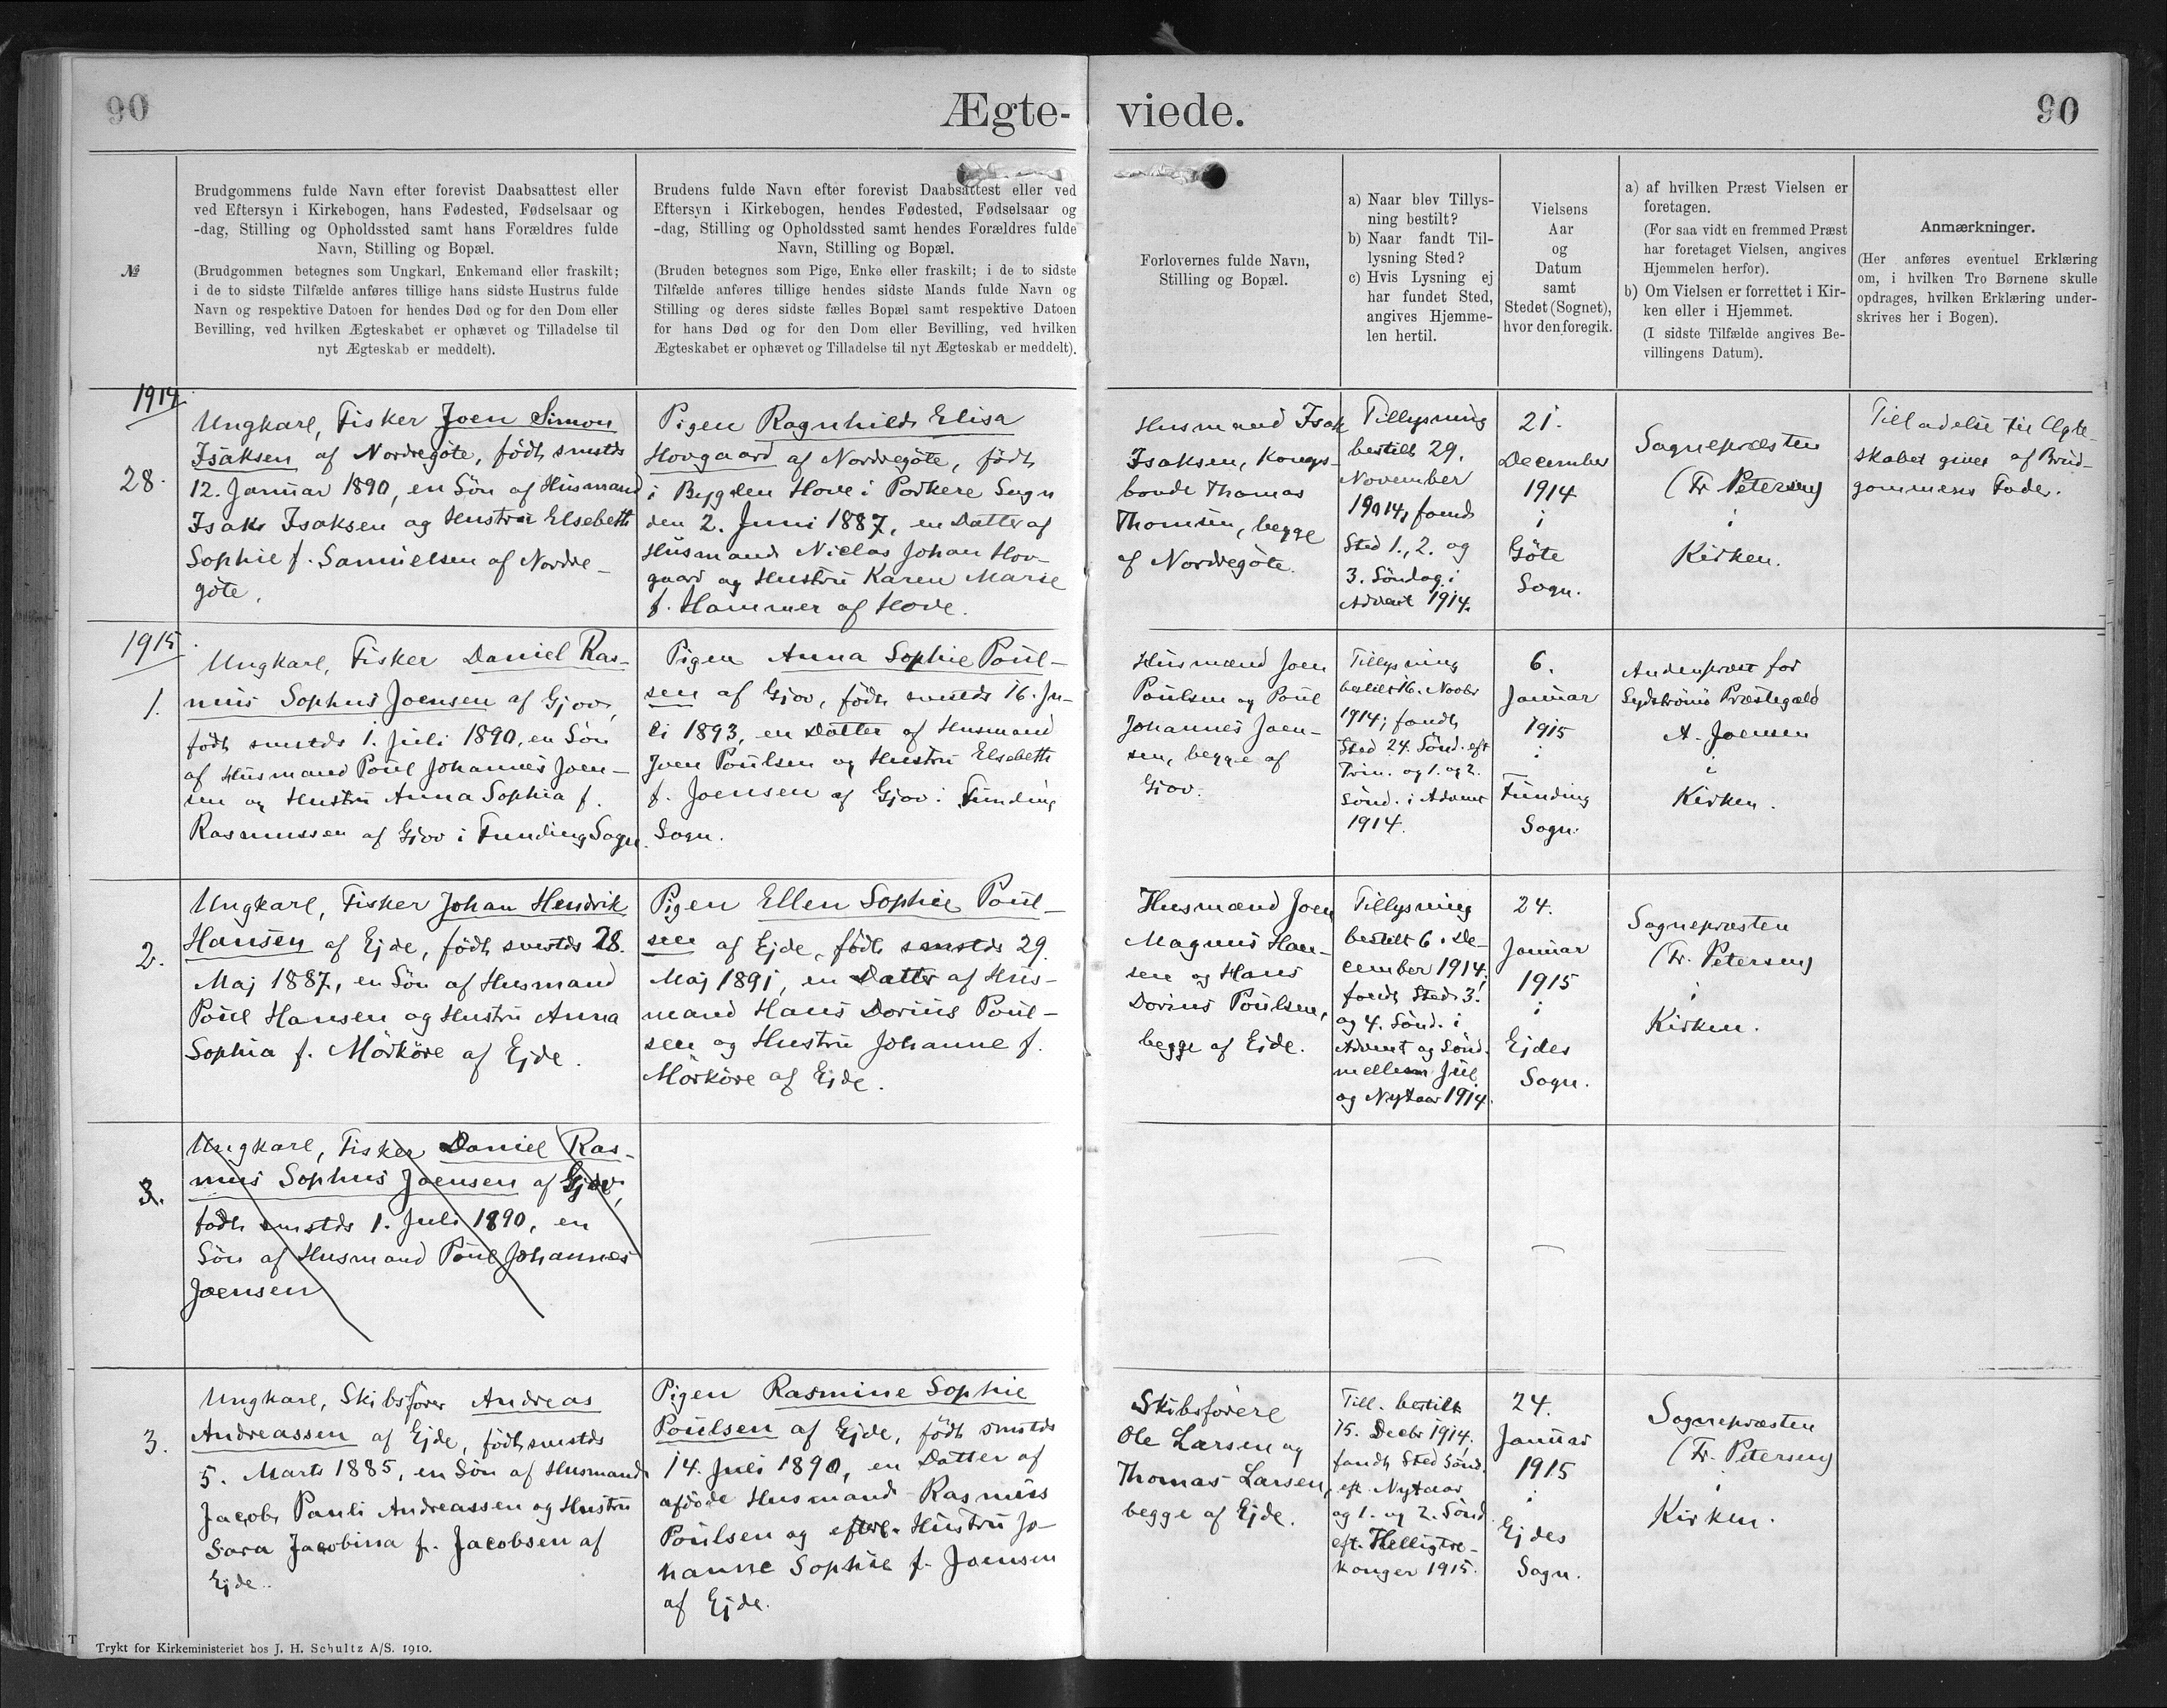 90
Ægte-
viede.
90
№
Brudgommens fulde Navn efter forevist Daabsattest eller
ved Eftersyn i Kirkebogen, hans Fødested, Fødselsaar og
-dag, Stilling og Opholdssted samt hans Forældres fulde
Navn, Stilling og Bopæl.
(Brudgommen betegnes som Ungkarl, Enkemand eller fraskilt;
i de to sidste Tilfælde anføres tillige hans sidste Hustrus fulde
Navn og respektive Datoen for hendes Død og for den Dom eller
Bevilling, ved hvilken Ægteskabet er ophævet og Tilladelse til
nyt Ægteskab er meddelt).
Brudens fulde Navn efter forevist Daabsattest eller ved
Eftersyn i Kirkebogen, hendes Fødested, Fødselsaar og
-dag, Stilling og Opholdssted samt hendes Forældres fulde
Navn, Stilling og Bopæl.
(Bruden betegnes som Pige, Enke eller fraskilt; i de to sidste
Tilfælde anføres tillige hendes sidste Mands fulde Navn og
Stilling og deres sidste fælles Bopæl samt respektive Datoen
for hans Død og for den Dom eller Bevilling, ved hvilken
Ægteskabet er ophævet og Tilladelse til nyt Ægteskab er meddelt).
Forlovernes fulde Navn,
Stilling og Bopæl.
a) Naar blev Tillys-
ning bestilt?
b) Naar fandt Til-
lysning Sted?
c) Hvis Lysning ej
har fundet Sted,
angives Hjemme-
len hertil.
Vielsens
Aar
og
Datum
samt
Stedet (Sognet),
hvor den foregik.
a) af hvilken Præst Vielsen er
foretagen.
(For saa vidt en fremmed Præst
har foretaget Vielsen, angives
Hjemmelen herfor).
b) Om Vielsen er forrettet i Kir-
ken eller i Hjemmet.
(I sidste Tilfælde angives Be-
villingens Datum).
Anmærkninger.
(Her anføres eventuel Erklæring
om, i hvilken Tro Børnene skulle
opdrages, hvilken Erklæring under-
skrives her i Bogen).
1914
28.
Ungkarl, Fisker Joen Simon
Isaksen af Nordregöte, födt smstds
12. Januar 1890, en Sön af Husmand
Isak Isaksen og Hustru Elsebeth
Sophie f. Samuelsen af Nordre-
göte.
Pigen Ragnhild Elisa
Hovgaard af Nordregöte, födt
i Bygden Hove i Porkere Sogn
den 2. Juni 1887, en Datter af
Husmand Niclas Johan Hov-
gaard og Hustru Karen Marie
f. Hammer af Hove.
Husmænd Isak
Isaksen, Kongs-
bonde Thomas
Thomsen, begge
af Nordregöte.
Tillysning
bestilt 29.
November
1914, fandt
Sted 1., 2. og
3. Söndag i
Advent 1914.
21.
December
1914
i
Göte
Sogn.
Sognepræsten
(Fr. Petersen)
i
Kirken.
Tilladelse til Ægte-
skabet givet af Brud-
gommens Fader.
1915
1.
Ungkarl, Fisker Daniel Ras-
mus Sophus Joensen af Gjov,
födt smstds 1. Juli 1890, en Sön
af Husmand Poul Johannes Joen-
sen og Hustru Anna Sophia f.
Rasmussen af Gjov i Funding Sogn.
Pigen Anna Sophie Poul-
sen af Gjov, födt smstds 16. Ju-
li 1893, en Datter af Husmand
Joen Poulsen og Hustru Elsebeth
f. Joensen af Gjov i Funding
Sogn.
Husmænd Joen
Poulsen og Poul
Johannes Joen-
sen, begge af
Gjov.
Tillysning
bestilt 16. Novbr
1914; fandt
Sted 24. Sönd. eft
Trin. og 1. og 2.
Sönd. i Advent
1914.
6.
Januar
1915
i
Funding
Sogn.
Andenpræst for
Sydströmö Præstegæld
A. Joensen
i
Kirken.
2.
Ungkarl, Fisker Johan Hendrik
Hansen af Ejde, födt smstds 28.
Maj 1887, en Sön af Husmand
Poul Hansen og Hustru Anna
Sophia f. Mörköre af Ejde.
Pigen Ellen Sophie Poul-
sen af Ejde, födt smstds 29.
Maj 1891, en Datter af Hus-
mand Hans Dorius Poul-
sen og Hustru Johanne f.
Mörköre af Ejde.
Husmænd Joen
Magnus Han-
sen og Hans
Dorius Poulsen,
begge af Ejde.
Tillysning
bestilt 6. De-
cember 1914;
fandt Sted 3.
og 4. Sönd. i
Advent og Sönd.
mellem Jul
og Nytaar 1914.
24.
Januar
1915
i
Ejdes
Sogn.
Sognepræsten
(Fr. Petersen)
i
Kirken.
3.
Ungkarl, Fisker Daniel Ras-
mus Sophus Joensen af Gjov,
födt smstds 1. Juli 1890, en
Sön af Husmand Poul Johannes
Joensen
3.
Ungkarl, Skibsförer Andreas
Andreassen af Ejde, födt smstds
5. Marts 1885, en Sön af Husmand
Jacob Pauli Andreassen og Hustru
Sara Jacobina f. Jacobsen af
Ejde.
Pigen Rasmine Sophie
Poulsen af Ejde, födt smstds
14. Juli 1890, en Datter af
afdöde Husmand Rasmus
Poulsen og efterl. Hustru Jo-
hanne Sophie f. Joensen
af Ejde.
Skibsförere
Ole Larsen og
Thomas Larsen,
begge af Ejde.
Till. bestilt
15. Decbr 1914,
fandt Sted Sönd.
eft. Nytaar
og 1. og 2. Sönd.
eft. Helligtre-
konger 1915.
24.
Januar
1915
i
Ejdes
Sogn.
Sognepræsten
(Fr. Petersen)
i
Kirken.
Trykt for Kirkeministeriet hos J. H. Schultz A/S. 1910.